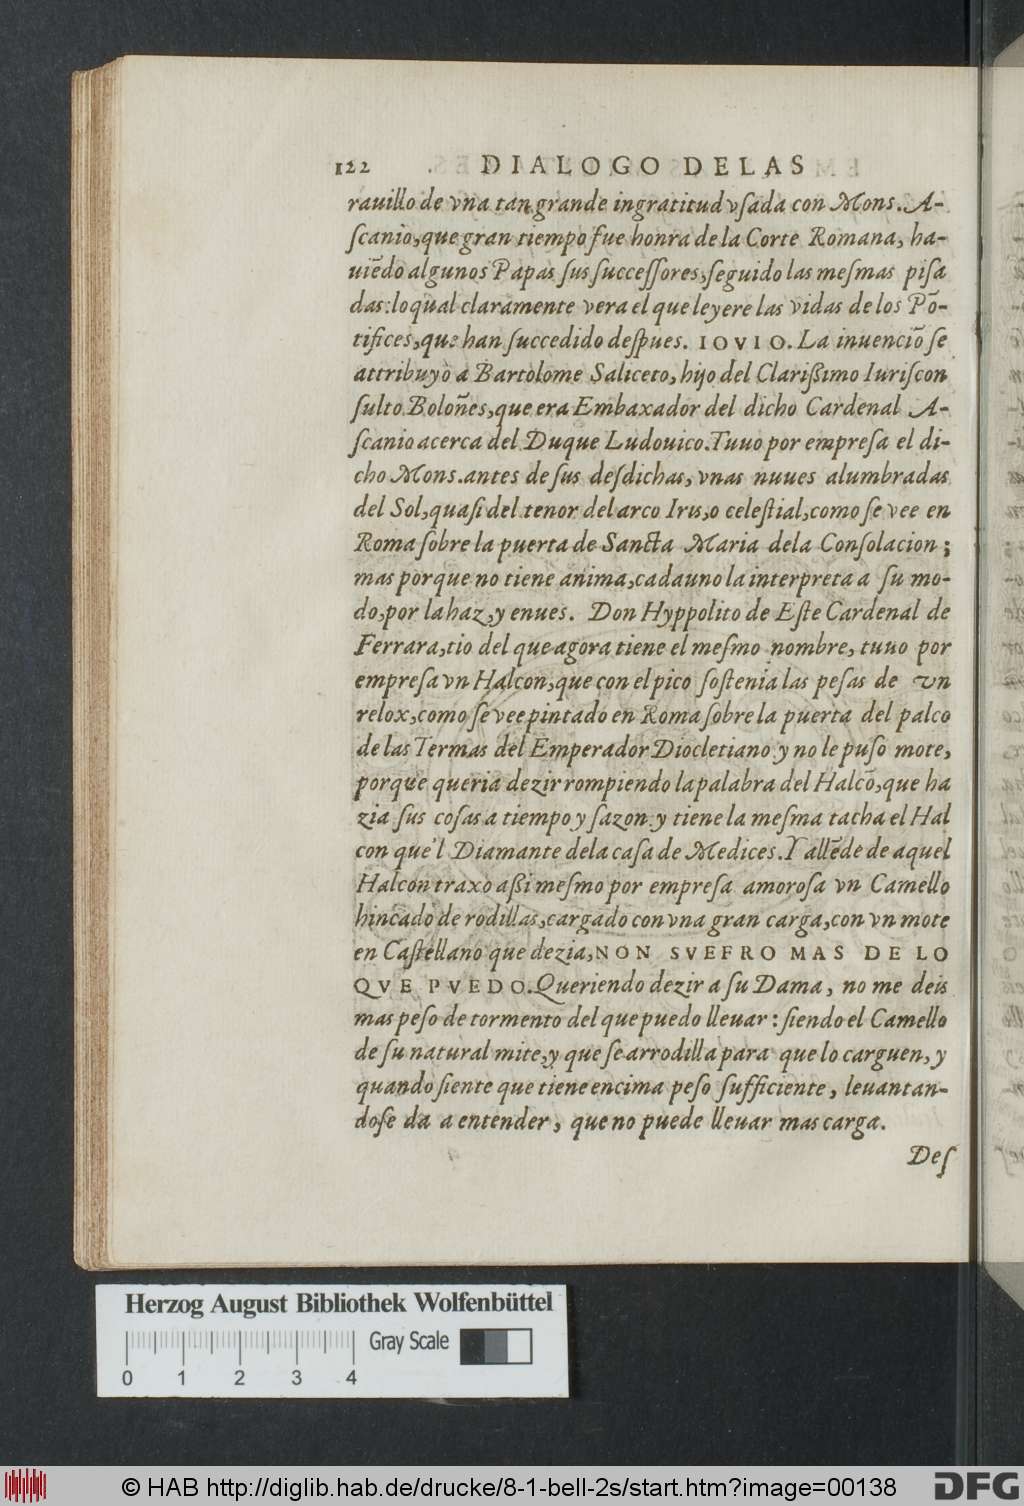 122 DIALOGO DELAS
rauillo de vna tan grande ingratitud vſada con Mons. A-
ſcanio, que gran tiempo fue honra de la Corte Romana, ha-
uiẽdo algunos Papas ſus ſucceſſores, ſeguido las meſmas piſa
das: lo qual claramente vera el que leyere las vidas de los Põ-
tifices, que han ſuccedido deſpues. IOVIO. La inuenciõ ſe
attribuyò à Bartolome Saliceto, hijo del Clarißimo Iuriſcon
ſulto Boloñes, que era Embaxador del dicho Cardenal A-
ſcanio acerca del Duque Ludouico. Tuuo por empreſa el di-
cho Mons. antes de ſus deſdichas, vnas nuues alumbradas
del Sol, quaſi del tenor del arco Iris, o celeſtial, como ſe vee en
Roma ſobre la puerta de Sancta Maria dela Conſolacion;
mas porque no tiene anima, cada uno la interpreta a ſu mo-
do, por la haz, y enues. Don Hyppolito de Eſte Cardenal de
Ferrara, tio del que agora tiene el meſmo nombre, tuuo por
empreſa vn Halcon, que con el pico ſoſtenia las peſas de vn
relox, como ſe vee pintado en Roma ſobre la puerta del palco
de las Termas del Emperador Diocletiano: y no le puſo mote,
porque queria dezir rompiendo la palabra del Halcõ, que ha
zia ſus coſas a tiempo y ſazon: y tiene la meſma tacha el Hal
con que'l Diamante dela caſa de Medices. Y allẽde de aquel
Halcon traxo aßi meſmo por empreſa amoroſa vn Camello
hincado de rodillas, cargado con vna gran carga, con vn mote
en Caſtellano que dezia, NON SVEFRO MAS DE LO
QVE PVEDO. Queriendo dezir a ſu Dama, no me deis
mas peſo de tormento del que puedo lleuar: ſiendo el Camello
de ſu natural mite, y que ſe arrodilla para que lo carguen, y
quando ſiente que tiene encima peſo ſufficiente, leuantan-
doſe da a entender, que no puede lleuar mas carga.
Deſ
Herzog August Bibliothek Wolfenbüttel
Gray Scale
0 1 2 3 4
© HAB http://diglib.hab.de/drucke/8-1-bell-2s/start.htm?image=00138
DFG